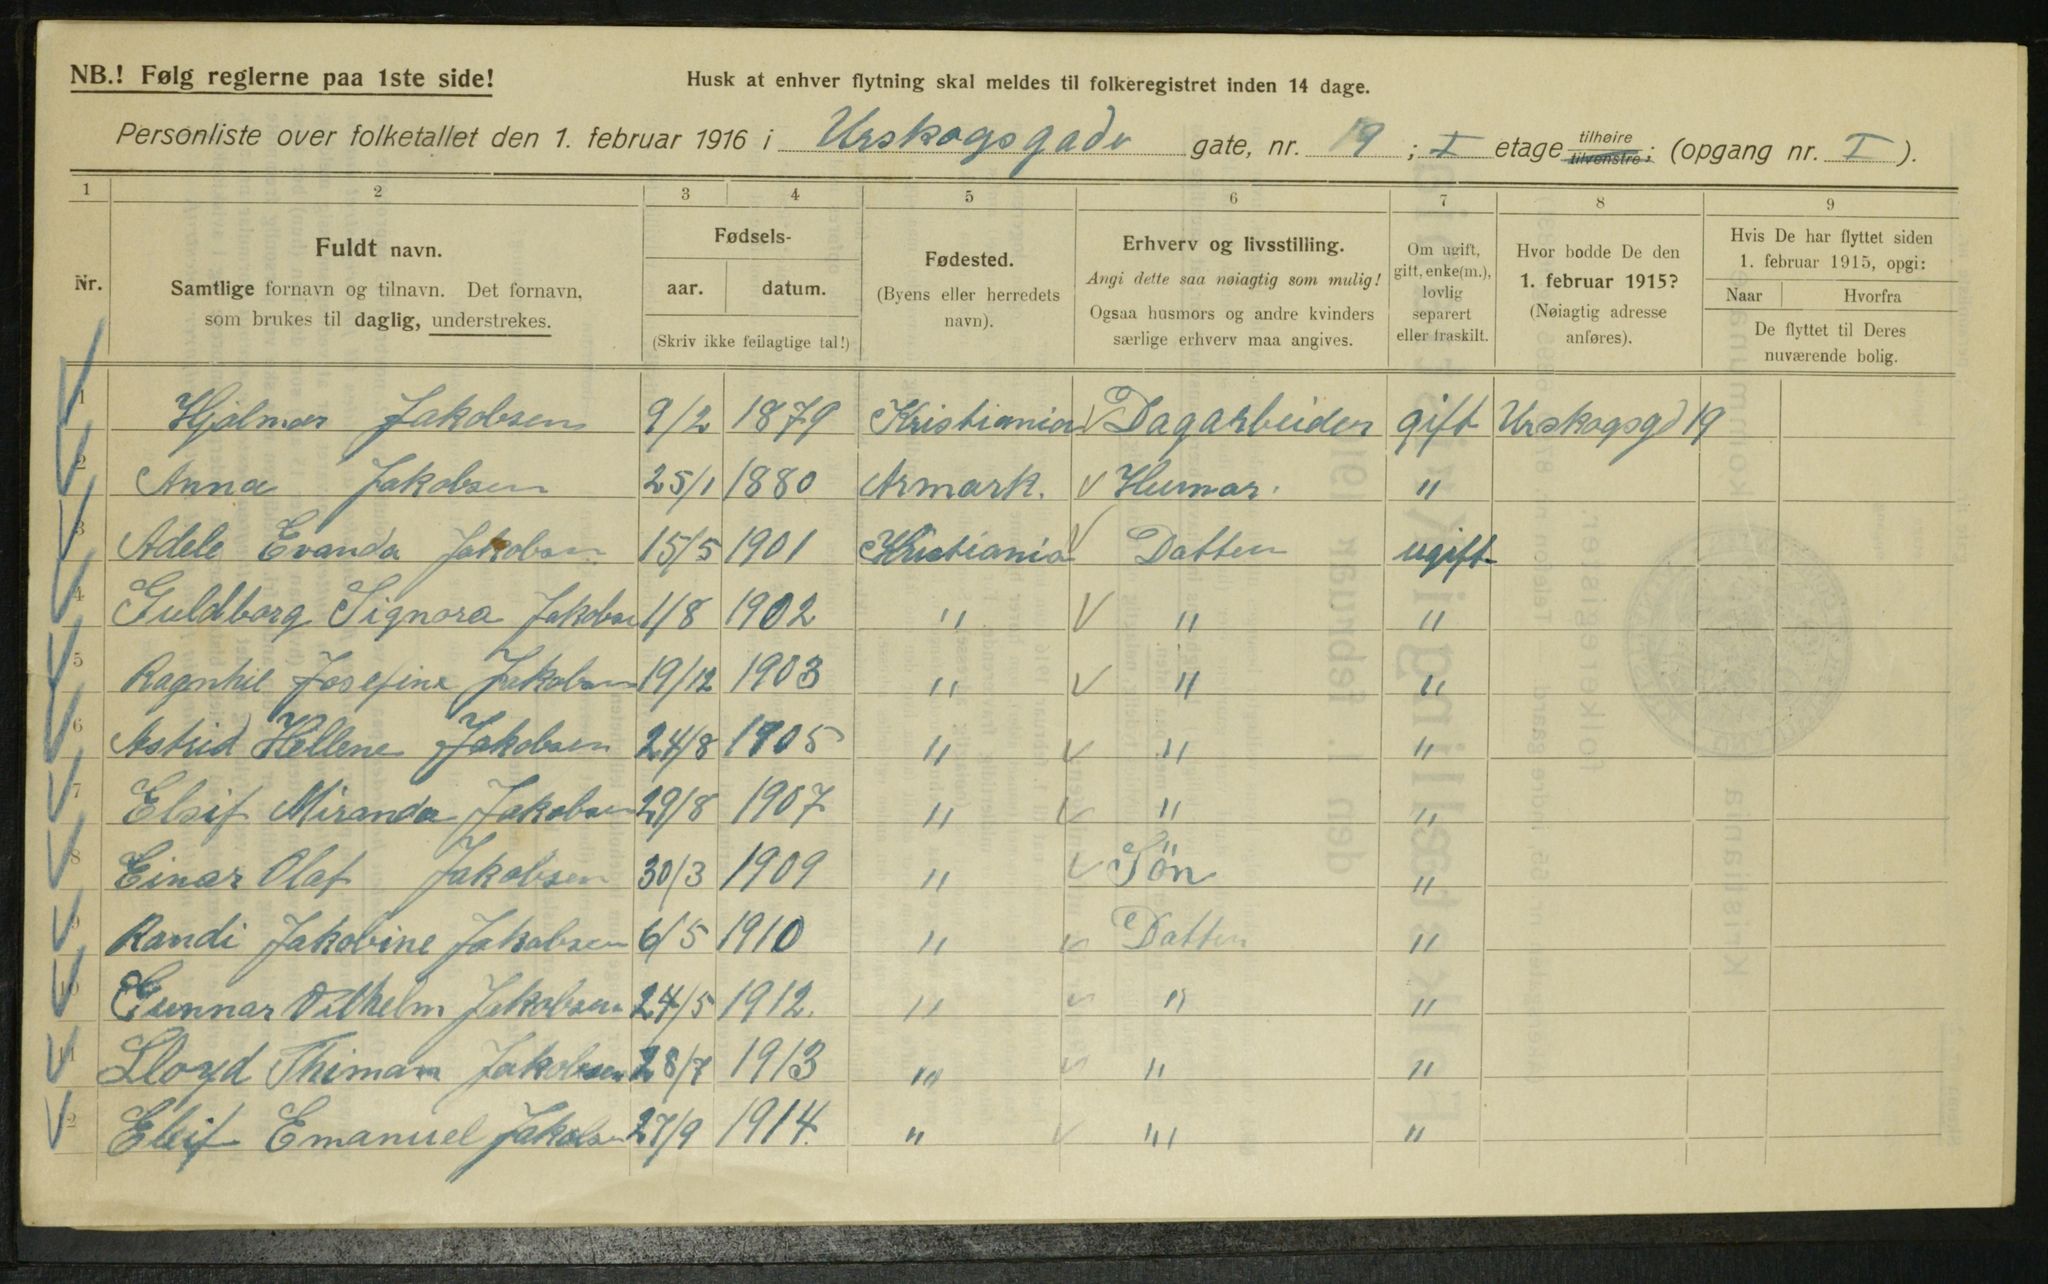 NB.! Følg reglerne paa 1ste side!
Husk at enhver flytning skal meldes til folkeregistret inden 14 dage.
Personliste over folketallet den 1. februar 1916 i Urskogsgade gate, nr. 19 ; I etage tilhøire tilvenstre; (opgang nr. I ).
1 2 3 4 5 6 7 8 9
Nr.
Fuldt navn.
Samtlige fornavn og tilnavn. Det fornavn,
som brukes til daglig, understrekes.
Fødsels-
aar. datum.
(Skriv ikke feilagtige tal!)
Fødested.
(Byens eller herredets
navn).
Erhverv og livsstilling.
Angi dette saa nøiagtig som mulig!
Ogsaa husmors og andre kvinders
særlige erhverv maa angives.
Om ugift,
gift, enke(m.),
lovlig
separert
eller fraskilt.
Hvor bodde De den
1. februar 1915?
(Nøiagtig adresse
anføres).
Hvis De har flyttet siden
1. februar 1915, opgi:
Naar Hvorfra
De flyttet til Deres
nuværende bolig.
1 Hjalmar Jakobsen 9/2 1879 Kristiania Dagarbeider gift Urskogsgd 19
2 Anna Jakobsen 25/1 1880 Armark. Husmor. "
3 Adele Evanda Jakobsen 15/5 1901 Kristiania Datter ugift
4 Guldborg Signora Jakobsen 1/8 1902 " " "
5 Ragnhil Josefine Jakobsen 19/12 1903 " " "
6 Astrid Hellene Jakobsen 24/8 1905 " " "
7 Elsif Miranda Jakobsen 29/8 1907 " " "
8 Einar Olaf Jakobsen 30/3 1909 " Sön "
9 Randi Jakobine Jakobsen 6/5 1910 " Datter "
10 Gunnar Vilhelm Jakobsen 24/5 1912. " " "
11 Lloyd Thiman Jakobsen 28/7 1913 " " "
12 Eleif Emanuel Jakobsen 27/9 1914. " " "